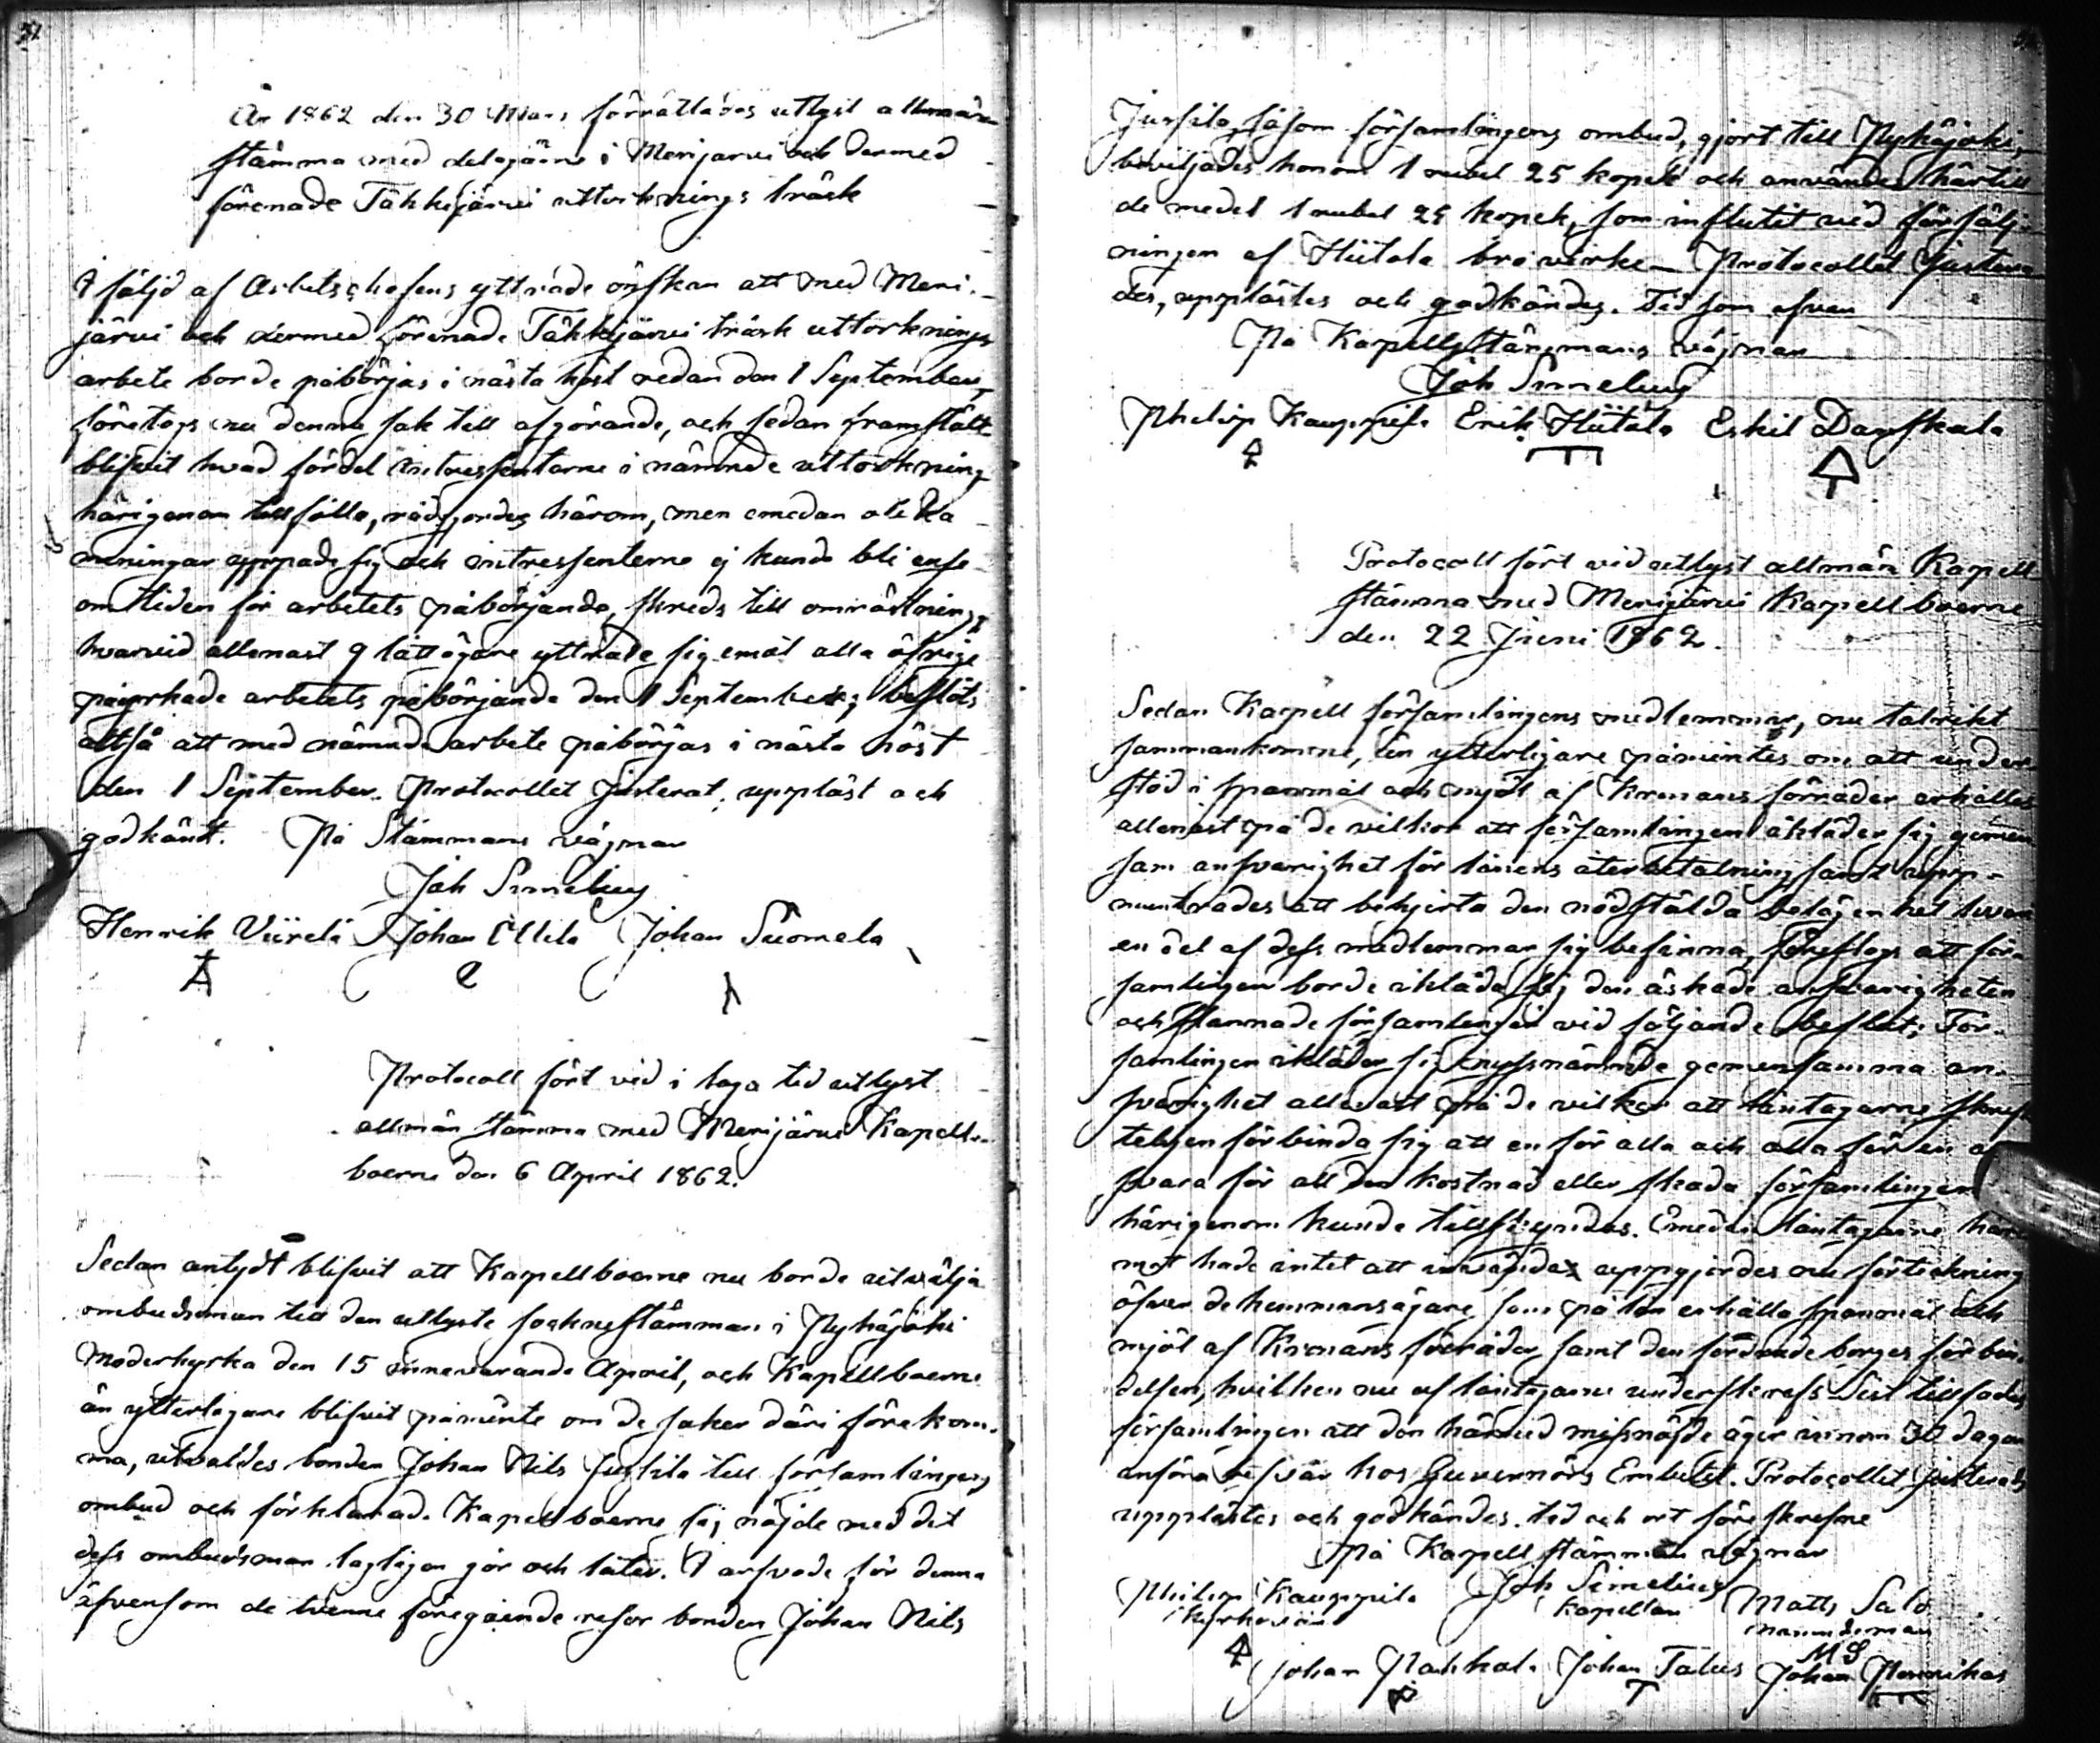 År 1862 den 30 Mars förrättades utlyst allmän
stämma med delegärne i Merijärvi och dermed
förenade Tähkijärvi uttorknings träsk
I följd af Arbetschefens yttrade önskan att med Meri-
järvi och dermed förenade Tähkijärvi träsk uttorknings
arbete borde påbörjas i nästa höst redan den 1 September,
företogs nu denna sak till afgörande, och sedan framstält
blifvit hvad fördel intressenterne i nämnde uttorkning
härigenom tillfölle, rådgjordes härom, men emedan olika
meningar yppade sig och intressenterne ej kunde bli ense
om tiden för arbetets påbörjande, skreds till omröstning,
hvarvid allenast 9 lottägare yttrade sig emot alla öfrige
påyrkade arbetets påbörjande den 1 September; beslöts
altså att med nämnde arbete påbörjas i nästa höst
den 1 September. Protocollet Justerat, uppläst och
godkänt. På Stämmans vägnar
Joh Simelius
Henrik Viirelä Johan Ollila Johan Suomela
Protocoll fört vid i laga tid utlyst
allmän stämma med Merijärvi Kapell-
boerne den 6 April 1862.
Sedan antydt blifvit att Kapellboerne nu borde utvälja
ombudsman till den utlyste sockne stämman i Pyhäjoki
Moderkyrka den 15 innevarande April, och Kapellboerne
än ytterligare blifvit påminte om de saker däri förekom-
ma, utvaldes bonden Johan Nils Jussila till församlingens
ombud och förklarade Kapellboerne sig nöjde med det
dess ombudsman lagligen gör och låter. I arfvode för denna
äfvensom de tvenne föregående resor bonden Johan Nils
Jussila, såsom församlingens ombud, gjort till Pyhäjoki,
beviljades honom 1 rubel 25 kopek och användes härtill
de medel 1 rubel 25 kopek, som influtit vid försälj-
ningen af Hiitola bro virke - Protocollet Justera-
des, upplästes och godkändes. Tid som ofvan
På Kapellstämmans vägnar
Joh Simelius
Philip Kauppila Erik Hiitola Eskil Dagskala
Protocoll fört vid utlyst allmän Kapell
stämma med Merijärvi Kapellboerne
den 22 Juni 1862.
Sedan Kapell församlingens medlemmar, nu talrikt
sammankomne, än ytterligare påmintes om att under-
stöd i spannmål och mjöl af Kronans förråder erhålles
allenast på de vilkor att församlingen ikläder sig gemen
sam ansvarighet för lånens återbetalning samt upp-
muntrades att behjerta den nödstälda belägenhet hvari
en del af dess medlemmar sig befinna, föreslogs att för-
samlingen borde ikläda sig den äskade ansvarigheten
och stannade församlingen vid följande beslut; För-
samlingen ikläder sig nyssnämnde gemensamma an-
svarighet allenast på de vilkor att låntagarne skrif
teligen förbinda sig att en för alla och alla för en
svara för all den kostnad eller skada församlingen
härigenom kunde tillskyndas. Emedan låntagarne här
mot hade intet att invända, uppgjordes nu förteckning
öfver de hemmansägare som på lån erhålla spannmål och
mjöl af Kronans förråder samt den fordrade borges förbin-
delsen, hvilken nu af låntagarne underskrefs. Sist tillsades
församlingen att den härmed missnöjde äger innom 30 dagar
anföra besvär hos Guvernörs Embetet. Protocollet Justerades
upplästes och godkändes. tid och ort föreskrefne
På Kapell stämmans vägnar
Joh Simelius
Kapellan
Philip Kauppila
Kyrkovärd
Matts Salo
nämndeman
MS
Johan Pahkala Johan Talus Johan